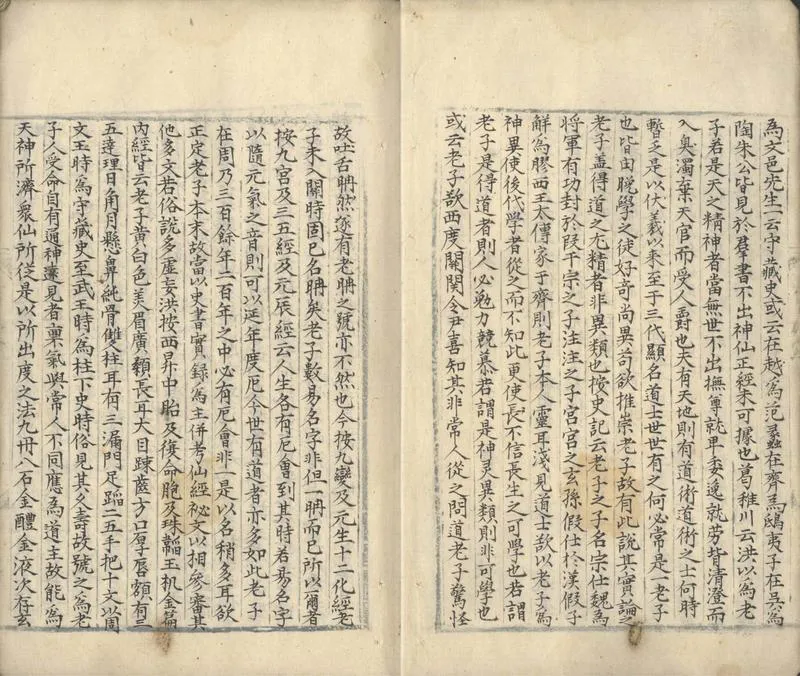 為文邑先生一云守藏史或云在越為范蠡在齊為鴟夷子在吳為
陶朱公皆見於羣書不出神仙正經未可據也葛稚川云洪以為老
子若是天之精神者當無世不出撫尊就卑委逸就劳背清澄而
入臭濁棄天官而受人爵也夫有天地則有道術道術之士何時
暫乏是以伏羲以来至于三代顯名道士世世有之何必常是一老子
也皆由晚學之徒好竒尚異苟欲推崇老子故有此說其實論之
老子盖得道之尤精者非異類也按史記云老子之子名宗仕魏為
將軍有功封於叚干宗之子注注之子宮宮之玄孫假仕於漢假子
解為膠西王太傳家于齊則老子本人靈耳淺見道士欲以老子為
神異使後代學者從之而不知此更使長不信長生之可學也若謂
老子是得道者則人必勉力競慕若謂是神灵異類則非可學也
或云老子欲西度關関令尹喜知其非常人從之問道老子驚怪
故吐舌聃然遂有老聃之號亦不然也今按九變及元生十二化經老
子未入關時固已名聃矣老子數易名字非但一聃而已所以爾者
按九宮及三五經及元辰經云人生各有厄會到其時若易名字
以隨元氣之音則可以延年度厄今世有道者亦多如此老子
在周乃三百餘年二百年之中必有厄會非一是以名稍多耳欲
正定老子本末故當以史書實錄為主併考仙經祕文以相參審其
他多文若俗說多虚妄洪按西昇中胎及復命胞及珠韜玉札金篇
內經皆云老子黃白色美眉廣顙長耳大目踈齒方口厚唇額有三
五達理日角月懸鼻純骨雙柱耳有三漏門足蹈二五手把十文以周
文王時為守藏史至武王時為柱下史時俗見其久壽故號之為老
子人受命自有通神遠見者稟氣與常人不同應為道主故能為
天神所濟衆仙所從是以所出度之法九丹八石金醴金液次存玄